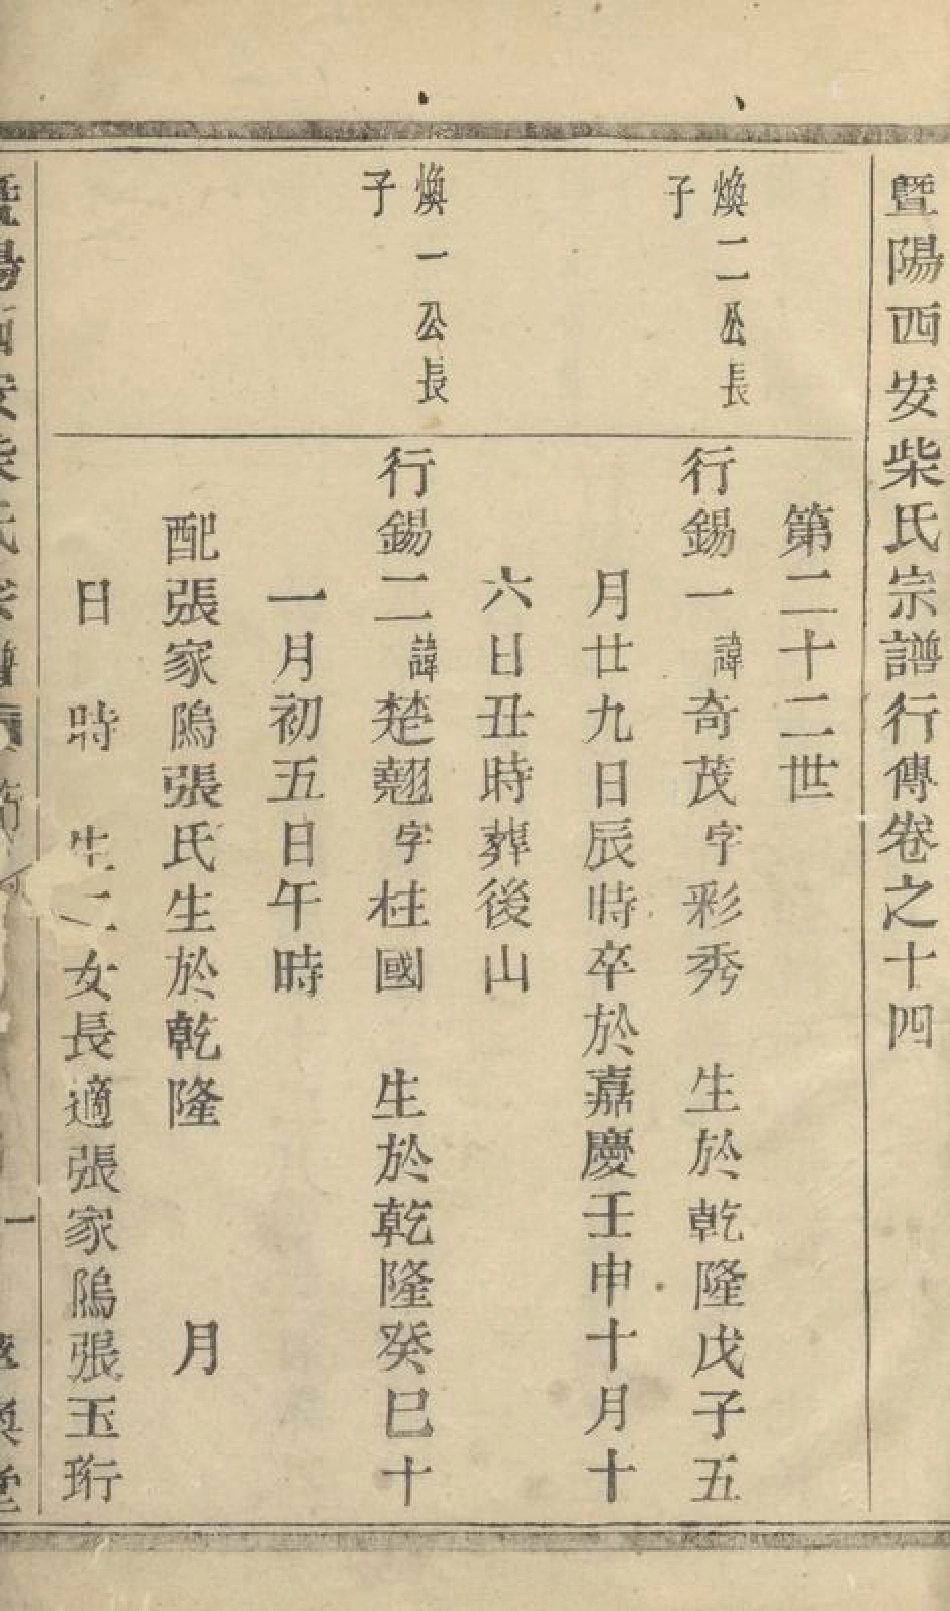 暨陽西安柴氏宗譜行傳卷之十四
第二十二世
煥二公長
子
行錫一諱奇茂字彩秀 生於乾隆戊子五
月廿九日辰時卒於嘉慶壬申十月十
六日丑時葬後山
煥一公長
子
行錫二諱楚翹字柱國 生於乾隆癸巳十
一月初五日午時
配張家隖張氏生於乾隆 月
日 時 生二女長適張家隖張玉珩
暨陽西安柴氏宗譜 一 堂